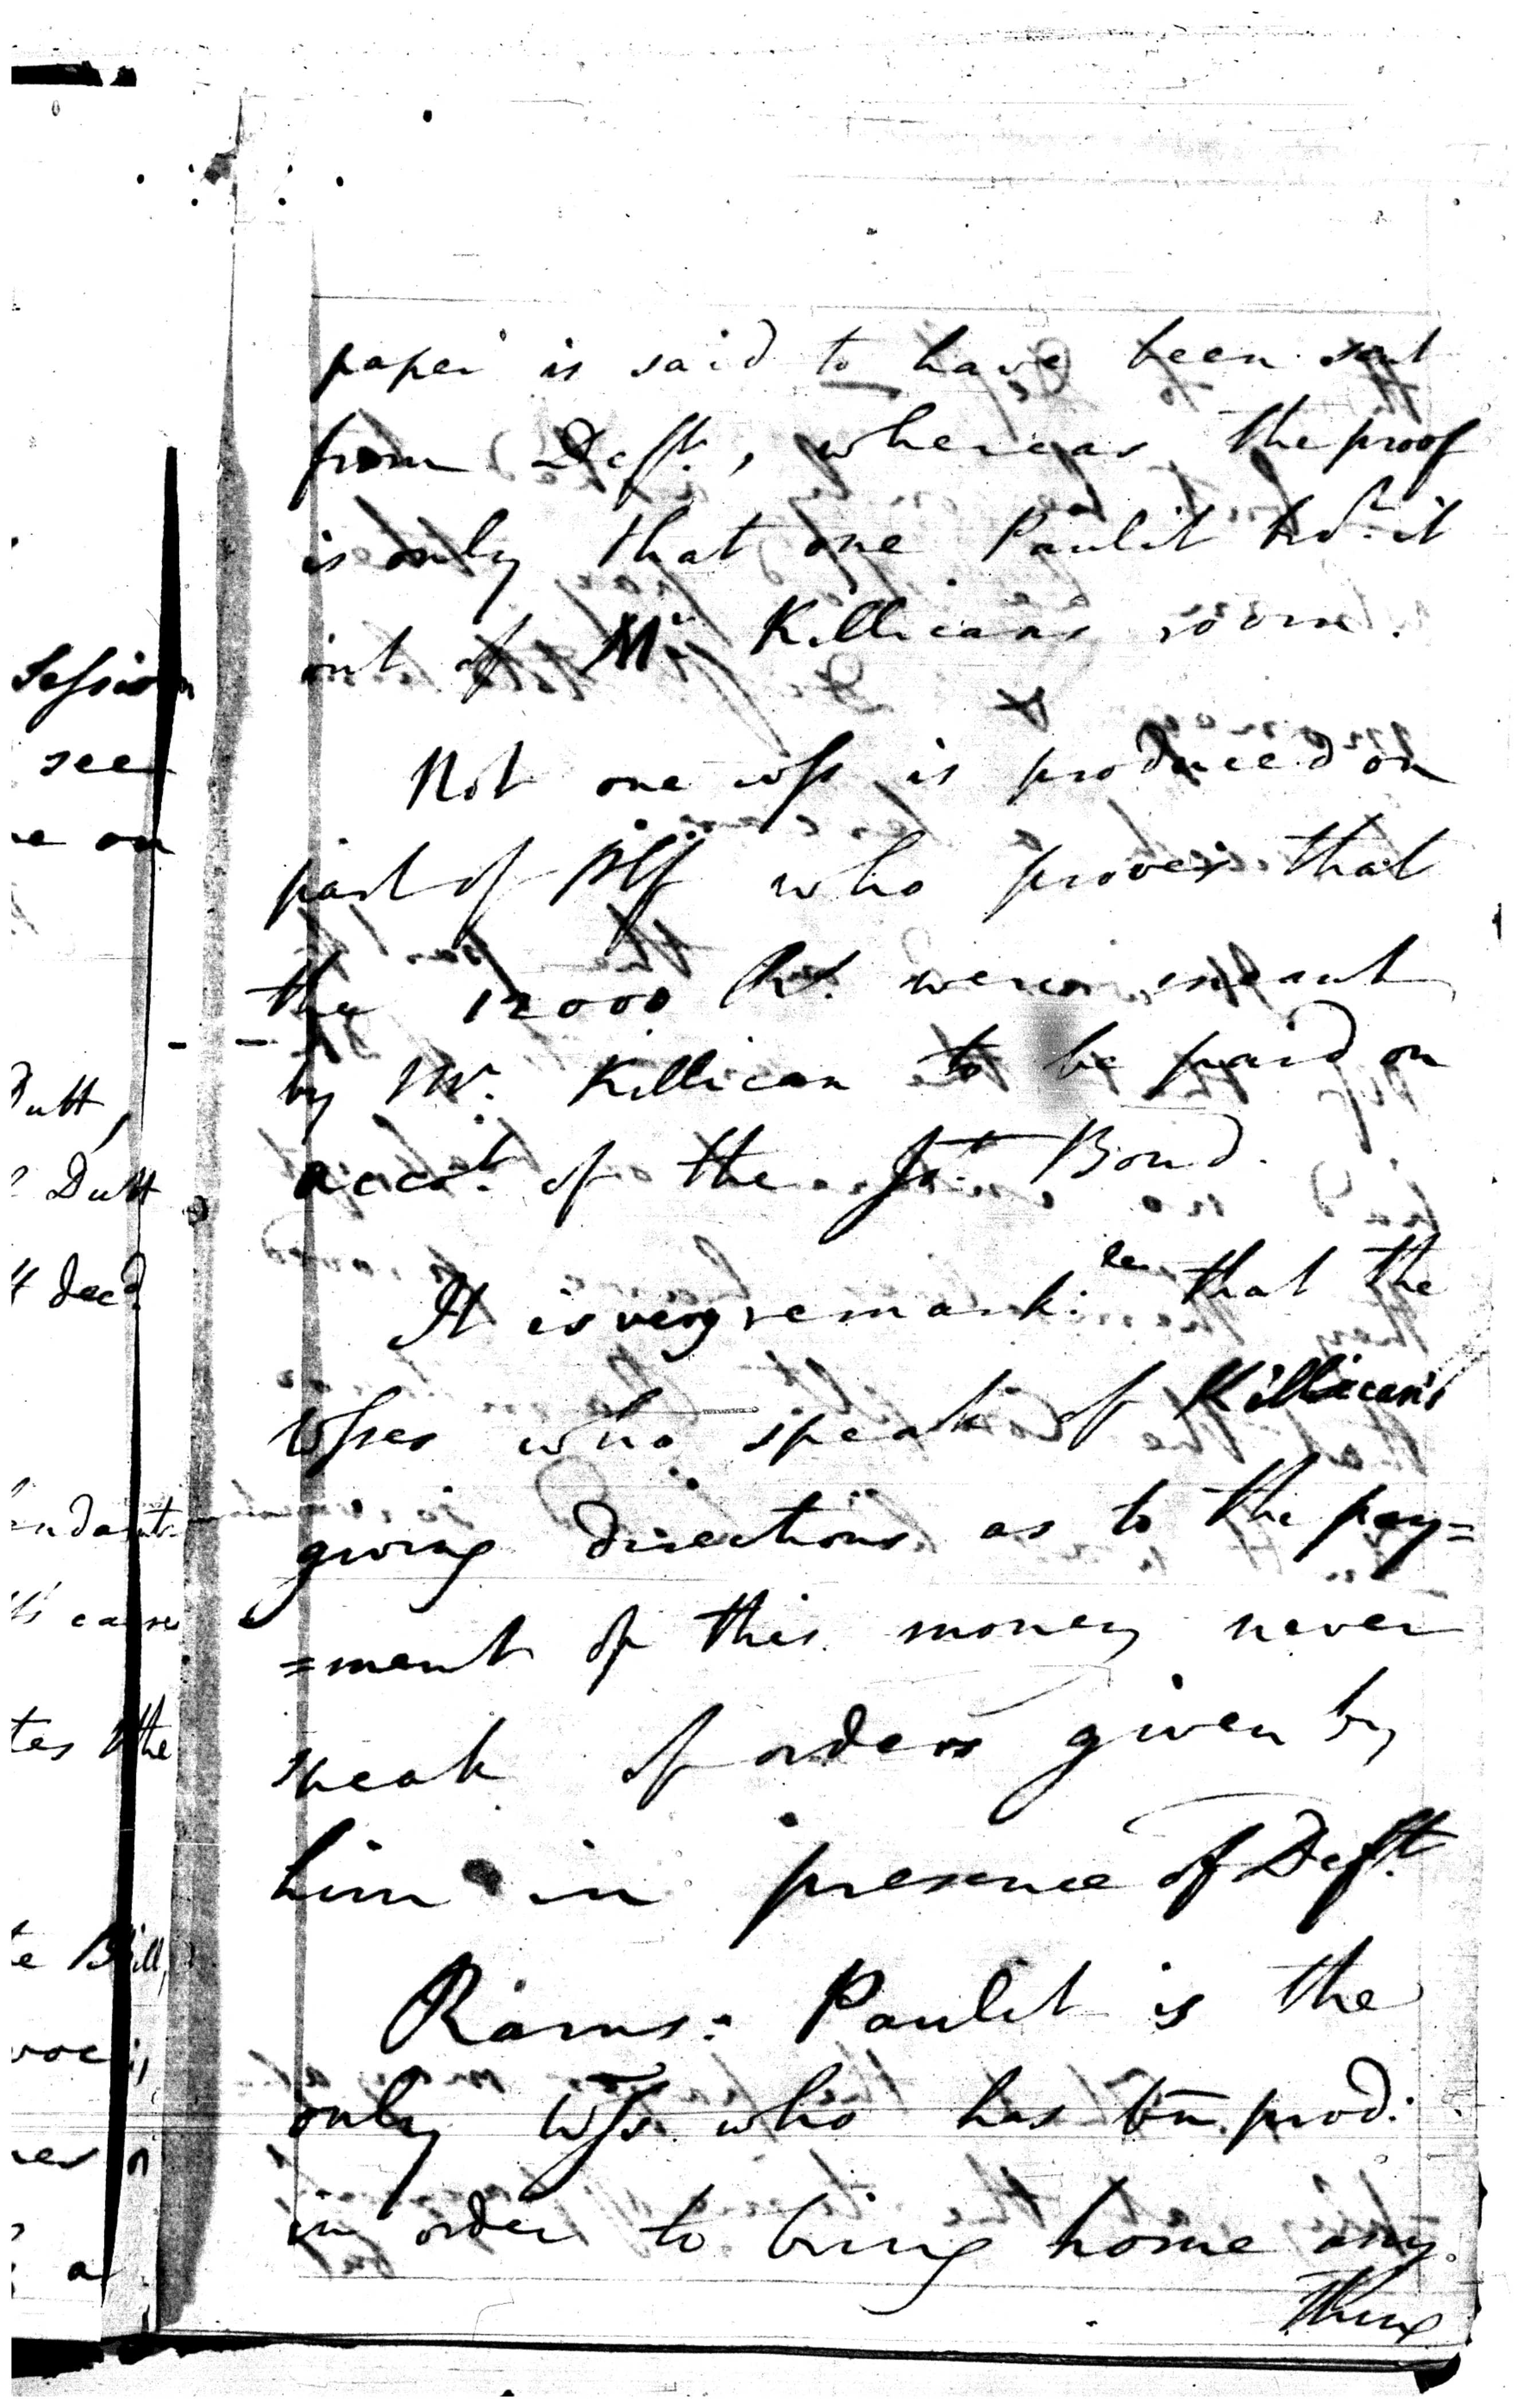 paper is said to have been sent
from Deft., whereas the proof
is only that one Paulit
out of Mr Killicans room.
Not one wss is produced on
part of Plf who proves that
the 12000 Rs. were meant
by Mr. Killican to be paid on
acct. of the Jt. Bond.
It is very remark:le that the
Wsses who speak of Killican's
giving directions as to the pay=
=ment of this money never
speak of orders given by
him in presence of Deft.
Rams: Paulit is the
only Wss who has bn prod:
in order to bring home any
thing
Session
see
on
Dutt,
Dutt
decd.
endants
cause
the
Bill,
a